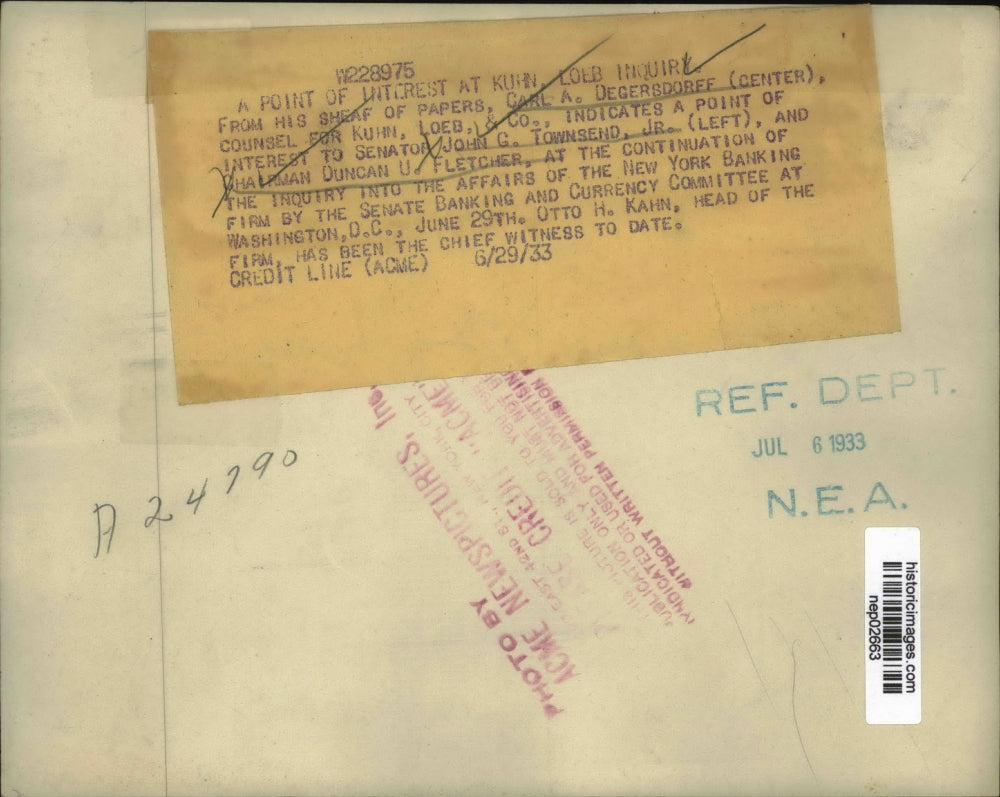 W228975
A POINT OF INTEREST AT KUHN, LOEB INQUIRY.
FROM HIS SHEAF OF PAPERS, CARL A. DEGERSDORFF (CENTER),
COUNSEL FOR KUHN, LOEB, & CO., INDICATES A POINT OF
INTEREST TO SENATOR JOHN G. TOWNSEND, JR. (LEFT), AND
CHAIRMAN DUNCAN U. FLETCHER, AT THE CONTINUATION OF
THE INQUIRY INTO THE AFFAIRS OF THE NEW YORK BANKING
FIRM BY THE SENATE BANKING AND CURRENCY COMMITTEE AT
WASHINGTON, D.C., JUNE 29TH. OTTO H. KAHN, HEAD OF THE
FIRM, HAS BEEN THE CHIEF WITNESS TO DATE.
CREDIT LINE (ACME) 6/29/33
REF. DEPT.
JUL 6 1933
N.E.A.
A24790
PHOTO BY
ACME NEWSPICTURES, Inc.
EAST 42ND ST., NEW YORK CITY
"ACME"
PICTURE IS SOLD TO YOU FOR
PUBLICATION ONLY AND MUST NOT BE
SYNDICATED OR USED FOR ADVERTISING
WITHOUT WRITTEN PERMISSION
historicimages.com
nep02663